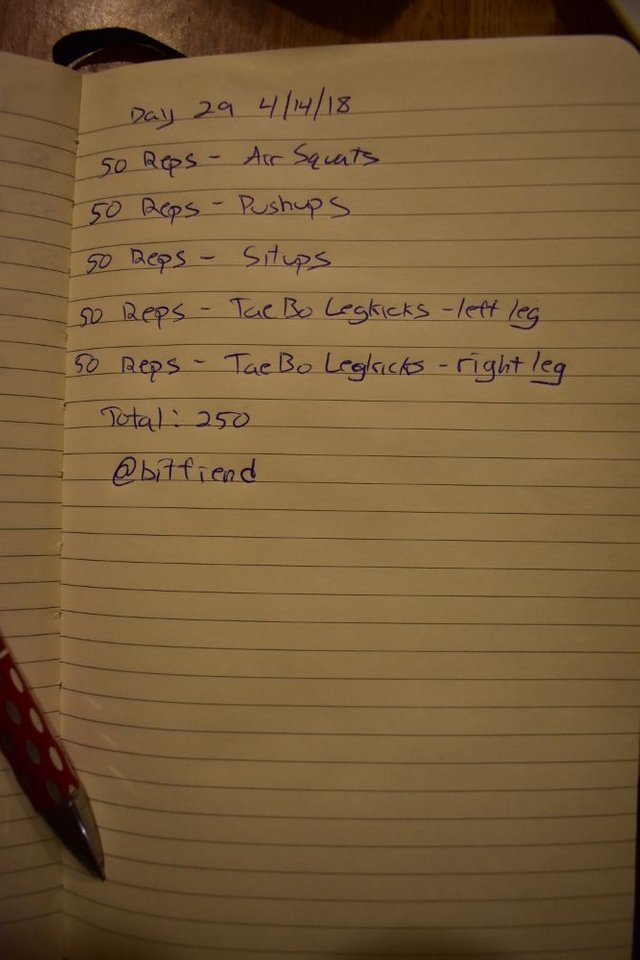 Day 29 4/14/18
50 Reps - Air Squats
50 Reps - Pushups
50 Reps - Situps
50 Reps - TaeBo Legkicks - left leg
50 Reps - TaeBo Legkicks - right leg
Total: 250
@bitfiend